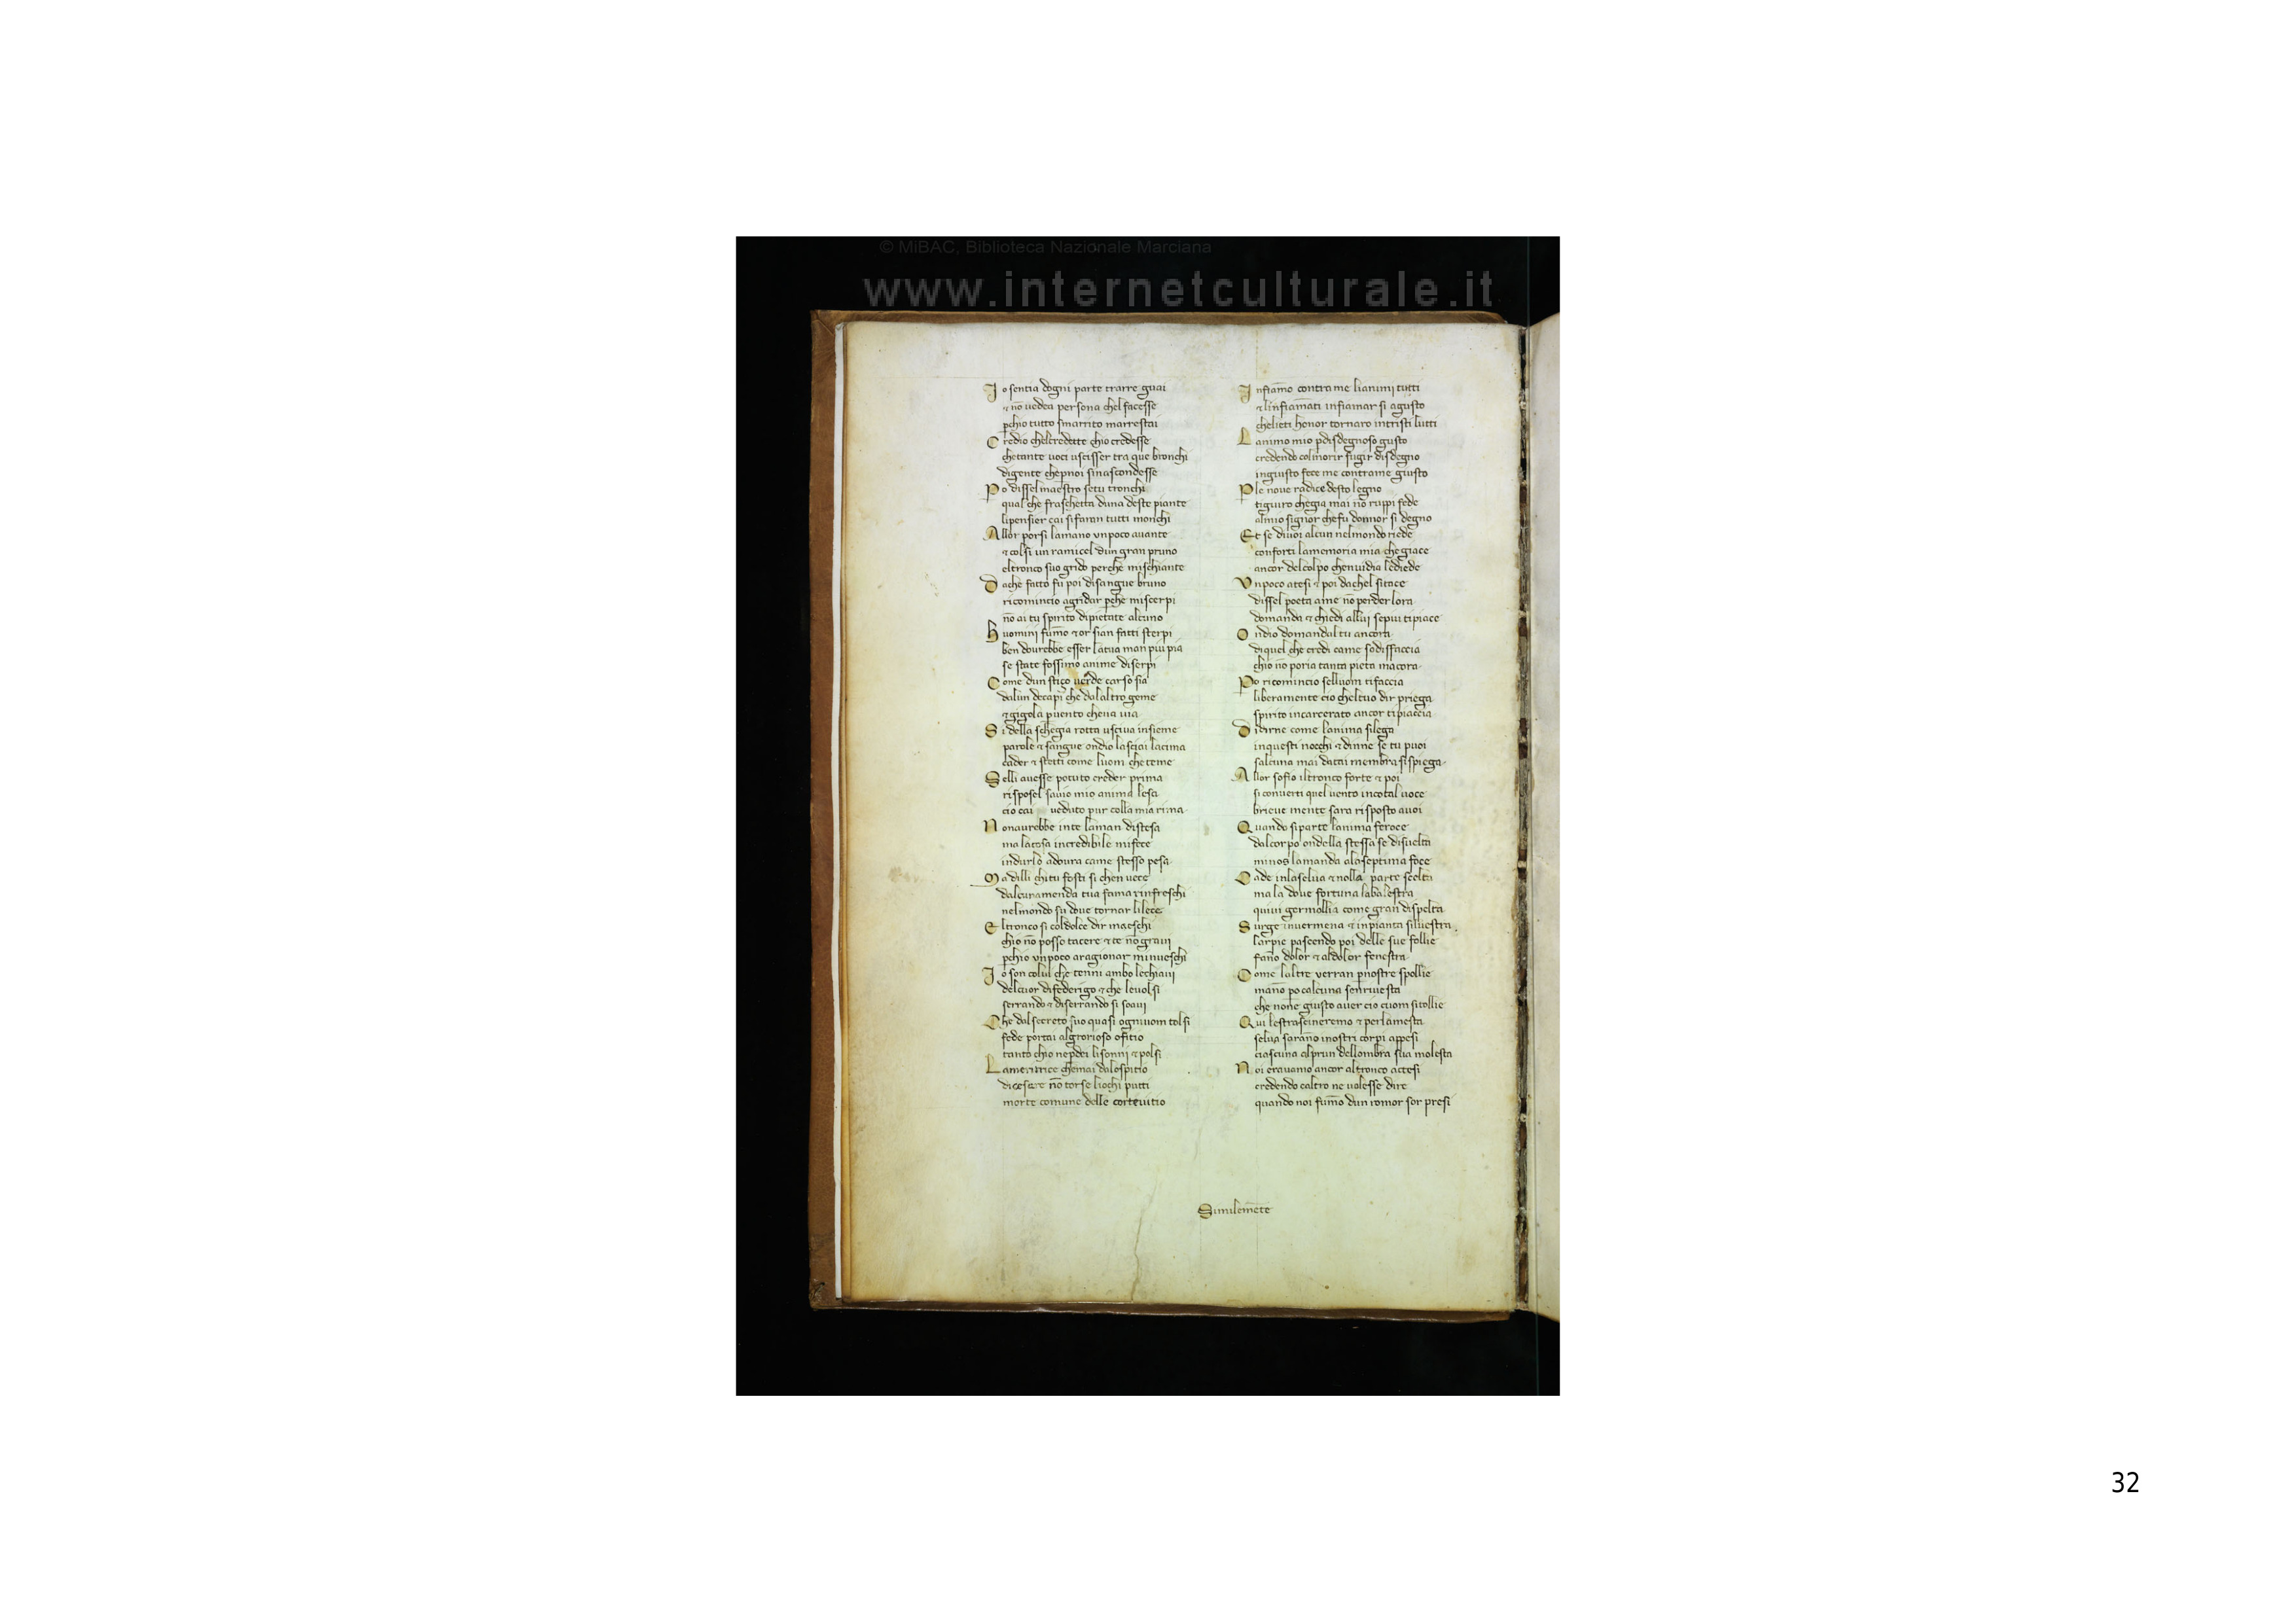 © MiBAC, Biblioteca Nazionale Marciana
www.internetculturale.it
Io sentia dogni parte trarre guai
⁊ nō vedea persona chel facesse
ꝑchio tutto smarrito marrestai
Credio chelcredette chio credesse
chetante uoci uscisser tra que bronchi
digente cheꝑnoi sinascondesse
Po dissel maestro setu tronchi
qual che fraschetta duna deste piante
lipensier cai sifaran tutti monchi
Allor porsi lamano vnpoco auante
⁊ colsi un ramicel dun gran pruno
eltronco suo grido perche mischiante
Dache fatto fu poi disangue bruno
ricomincio agridar ꝑche miscerpi
nō ai tu spirito dipietate alcuno
Huomini fumō ⁊ or sian fatti sterpi
ben dourebbe esser latua man piu pia
se state fossimo anime diserpi
Come dun stiço verde carso sia
dalun decapi che dalaltro geme
⁊ gigola ꝑuento cheua uia
Si della schegia rotta usciua insieme
parole ⁊ sangue ondio lasciai lacima
cader ⁊ stetti come luom che teme
Selli auesse potuto creder prima
risposel sauio mio anima lesa
cio cai veduto pur colla mia rima
Nonaurebbe inte laman distesa
ma lacosa incredibile mifece
indurlo adoura came stesso pesa
Madilli chitu fosti si chen uece
dalcuramenda tua fama rinfreschi
nelmondo su doue tornar lilece
Eltronco si coldolce dir maeschi
chio nō posso tacere ⁊ te nō graui
ꝑchio vnpoco aragionar minueschi
Io son colui che tenni ambo lechiaui
delcuor difederigo ⁊ che leuolsi
serrando ⁊ diserrando si soaui
Che dalsecreto suo quasi ognuom tolsi
fede portai alglorioso ofitio
tanto chio neꝑdei lisonni ⁊ polsi
Lameritrice chemai dalospitio
dicesare nō torse liochi putti
morte comune delle corte uitio
Infiamo contra me lianimi tutti
⁊ linfiamati infiamar si agusto
chelieti honor tornaro intristi lutti
Lanimo mio ꝑdisdegnoso gusto
credendo colmorir fugir disdegno
ingiusto fece me contrame giusto
Ple noue radice desto legno
tiguiro chegia mai nō ruppi fede
almio signor chefu donnor si degno
Et se diuoi alcun nelmondo riede
conforti lamemoria mia che giace
ancor delcolpo chenuidia lediede
Vnpoco atesi ⁊ poi dachel sitace
dissel poeta ame nō perder lora
domanda ⁊ chiedi allui sepiu tipiace
Ondio domandal tu ancora
diquel che credi came sodissaccia
chio nō poria tanta pieta macora
Po ricomincio selluom tifaccia
liberamente cio cheltuo dir priega
spirito incarcerato ancor tipiaccia
Didirne come lanima silega
inquesti nocchi ⁊ dinne se tu puoi
salcuna mai datai membra sispiega
Allor sofio iltronco forte ⁊ poi
si conuerti quel uento incotal uoce
brieue mente sara risposto auoi
Quando siparte lanima feroce
dalcorpo ondella stessa se disuelta
minos lamanda alaseptima foce
Cade inlaselua ⁊ nolla parte scelta
ma la doue fortuna labalestra
quiui germollia come gran dispelta
Surge inuermena ⁊ inpianta siluestra
larpie pascendo poi delle sue follie
fano dolor ⁊ aldolor fenestra
Come laltre verran ꝑnostre spollie
mano ꝑo calcuna senriuesta
che none giusto auer cio cuom sitollie
Qui lestrascineremo ⁊ perlamesta
selua sarāno inostri corpi appesi
ciascuna alprun dellombra sua molesta
Noi erauamo ancor altronco atesi
credendo caltro ne uolesse dire
quando noi fumō dun romor sor presi
Similemēte
32